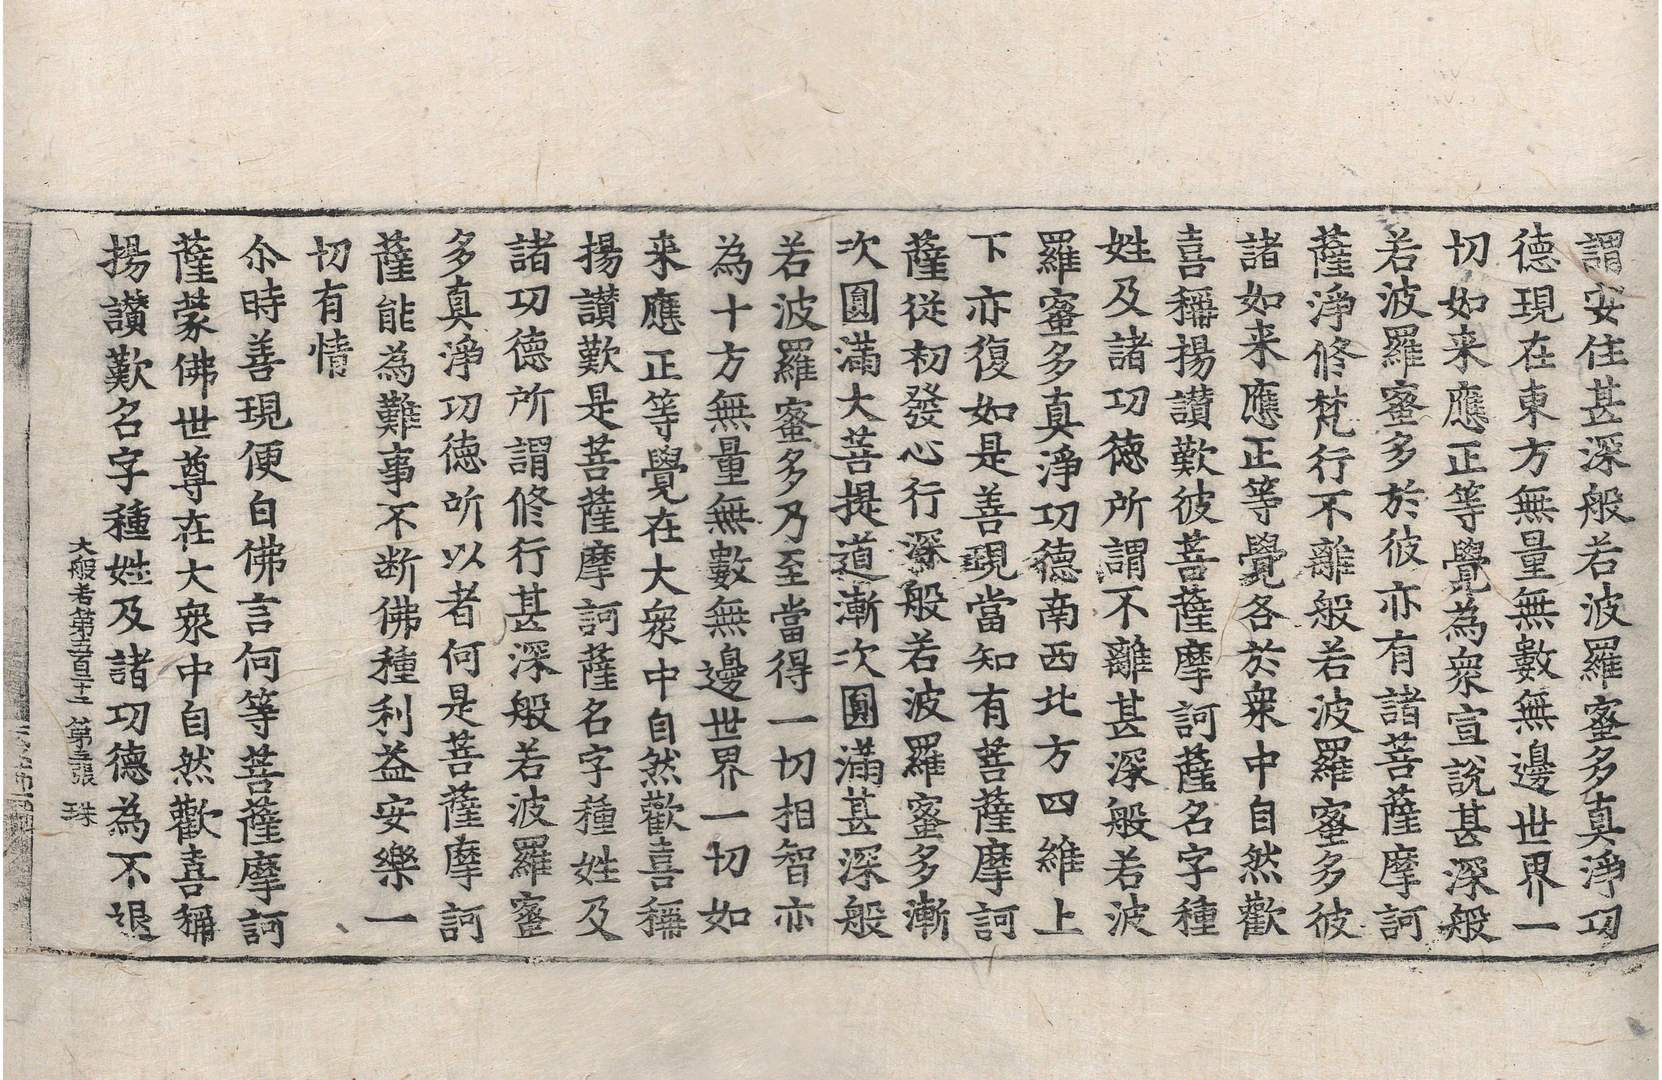 謂安住甚深般若波羅蜜多真淨功
德現在東方無量無數無邊世界一
切如来應正等覺為衆宣說甚深般
若波羅蜜多於彼亦有諸菩薩摩訶
薩淨修梵行不離般若波羅蜜多彼
諸如来應正等覺各於衆中自然歡
喜稱揚讃歎彼菩薩摩訶薩名字種
姓及諸功德所謂不離甚深般若波
羅蜜多真淨功德南西北方四維上
下亦復如是善現當知有菩薩摩訶
薩從初發心行深般若波羅蜜多漸
次圓滿大菩提道漸次圓滿甚深般
若波羅蜜多乃至當得一切相智亦
為十方無量無數無邊世界一切如
来應正等覺在大衆中自然歡喜稱
揚讃歎是菩薩摩訶薩名字種姓及
諸功德所謂修行甚深般若波羅蜜
多真淨功德所以者何是菩薩摩訶
薩能為難事不断佛種利益安樂一
切有情
尒時善現便白佛言何等菩薩摩訶
薩蒙佛世尊在大衆中自然歡喜稱
揚讃歎名字種姓及諸功德為不退
大般若第五百十二 第五張 珠